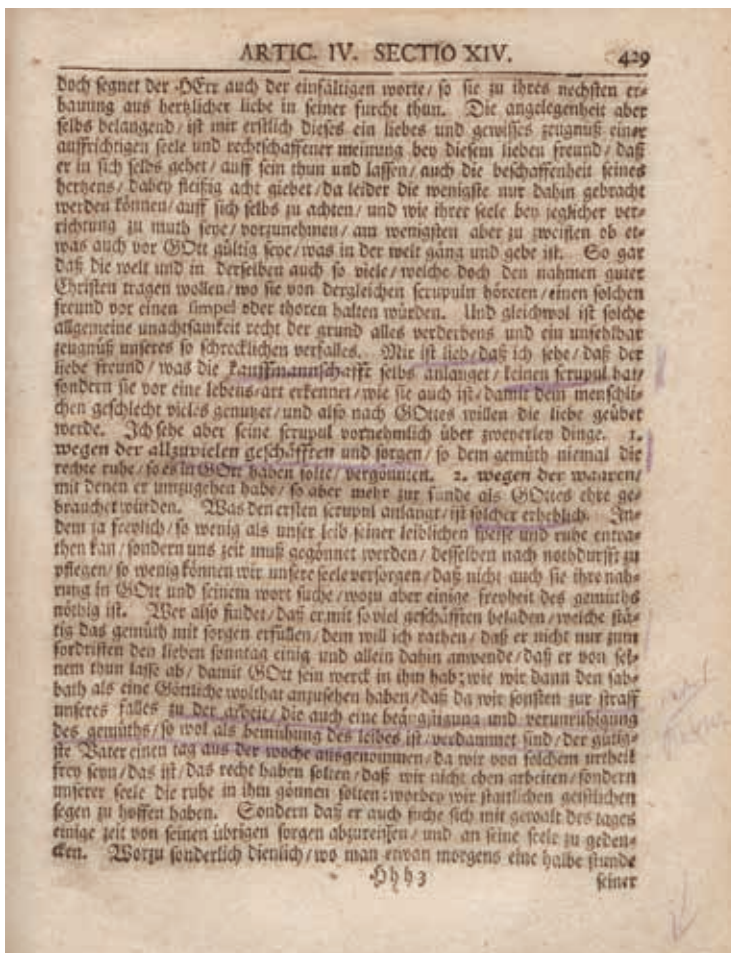 ARTIC. IV. SECTIO XIV. 429
doch segnet der HErr auch der einfältigen worte/ so sie zu ihres nechsten er-
bauung aus hertzlicher liebe in seiner furcht thun. Die angelegenheit aber
selbs belangend/ ist mir erstlich dieses ein liebes und gewisses zeugnuß einer
auffrichtigen seele und rechtschaffener meinung bey diesem lieben freund/ daß
er in sich selbs gehet/ auff sein thun und lassen/ auch die beschaffenheit seines
hertzens/ dabey fleißig acht giebet/ da leider die wenigste nur dahin gebracht
werden können/ auff sich selbs zu achten/ und wie ihrer seele bey jeglicher ver-
richtung zu muth seye/ vorzunehmen/ am wenigsten aber zu zweiflen ob et-
was auch vor GOtt gültig seye/ was in der welt gäng und gebe ist. So gar
daß die welt und in derselben auch so viele/ welche doch den nahmen guter
Christen tragen wollen/ wo sie von dergleichen scrupuln höreten/ einen solchen
freund vor einen simpel oder thoren halten würden. Und gleichwol ist solche
allgemeine unachtsamkeit recht der grund alles verderbens und ein unfehlbar
zeugnüß unseres so schrecklichen verfalles. Mir ist lieb/ daß ich sehe/ daß der
liebe freund/ was die kauffmannschafft selbs anlanget/ keinen scrupul hat/
sondern sie vor eine lebens-art erkennet/ wie sie auch ist/ damit dem menschli-
chen geschlecht vieles genutzet/ und also nach GOttes willen die liebe geübet
werde. Ich sehe aber seine scrupul vornehmlich über zweyerley dinge. 1.
wegen der allzuvielen geschäfften und sorgen/ so dem gemüth niemal die
rechte ruhe/ so es in GOtt haben solte/ vergönneten. 2. wegen der waaren/
mit denen er umzugehen habe/ so aber mehr zur sünde als GOttes ehre ge-
brauchet würden. Was den ersten scrupul anlangt/ ist solcher erheblich. In-
dem ja freylich/ so wenig als unser leib seiner leiblichen speise und ruhe entra-
then kan/ sondern uns zeit muß gegönnet werden/ desselben nach nothdurfft zu
pflegen/ so wenig können wir unsere seele versorgen/ daß nicht auch sie ihre nah-
rung in GOtt und seinem wort suche/ wozu aber einige freyheit des gemüths
nöthig ist. Wer also findet/ daß er mit so viel geschäfften beladen/ welche stä-
tig das gemüth mit sorgen erfüllen/ dem will ich rathen/ daß er nicht nur zum
fordristen den lieben sonntag einig und allein dahin anwende/ daß er von sei-
nem thun lasse ab/ damit GOtt sein werck in ihm hab; wie wir dann den sab-
bath als eine Göttliche wolthat anzusehen haben/ daß da wir sonsten zur straff
unseres falles zu der arbeit/ die auch eine beängstigung und verunruhigung
des gemüths/ so wol als bemühung des leibes ist/ verdammet sind/ der gütig-
ste Vater einen tag aus der woche ausgenommen/ da wir von solchem urtheil
frey seyn/ das ist/ das recht haben solten/ daß wir nicht eben arbeiten/ sondern
unserer seele die ruhe in ihm gönnen solten: worbey wir stattlichen geistlichen
segen zu hoffen haben. Sondern daß er auch suche sich mit gewalt des tages
einige zeit von seinen übrigen sorgen abzureissen/ und an seine seele zu geden-
cken. Worzu sonderlich dienlich/ wo man etwan morgens eine halbe stunde
Hhh 3 seiner